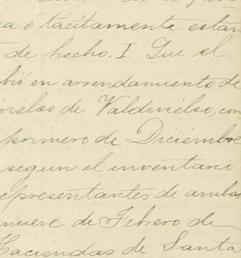 o tácitamente estan
de hecho. I. Que el
bió en arrendamiento de
de Valdivielso, con
primero de Diciembre
segun el inventario
representantes de ambas
nueve de Febrero de
Haciendas de Santa